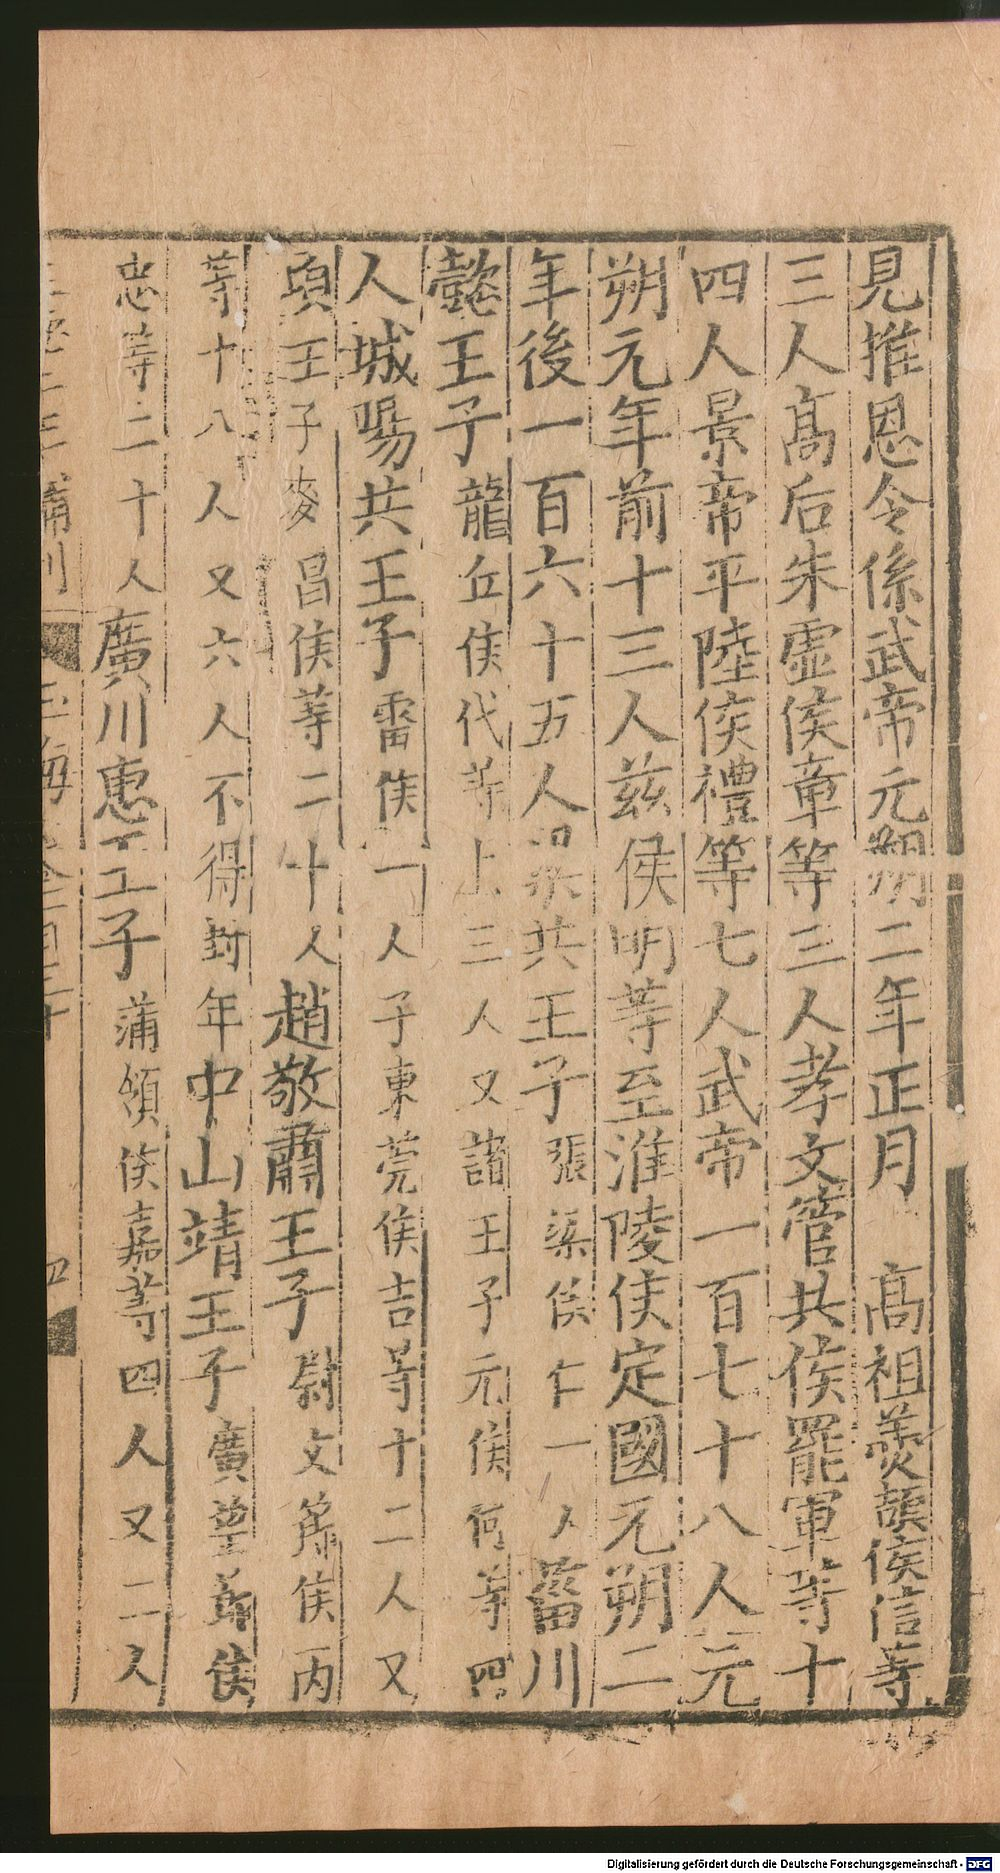 見推恩令係武帝元朔二年正月　高祖羮頡侯信等
三人髙后朱虚侯章等三人孝文管共侯罷軍等十
四人景帝平陸侯禮等七人武帝一百七十八人元
朔元年前十三人兹侯明等至淮陵侯定國元朔二
年後一百六十五人梁共王子張梁侯仁一人菑川
懿王子龍丘侯代等上三人又諸王子元侯何等四
人城陽共王子雷侯一人子東莞侯吉等十二人又
頃王子麥昌侯等二十人趙敬肅王子尉文節侯丙
等十八人又六人不得封年中山靖王子廣望侯
忠等二十人廣川惠王子蒲領侯嘉等四人又二人
玉海
Digitalisierung gefördert durch die Deutsche Forschungsgemeinschaft - DFG